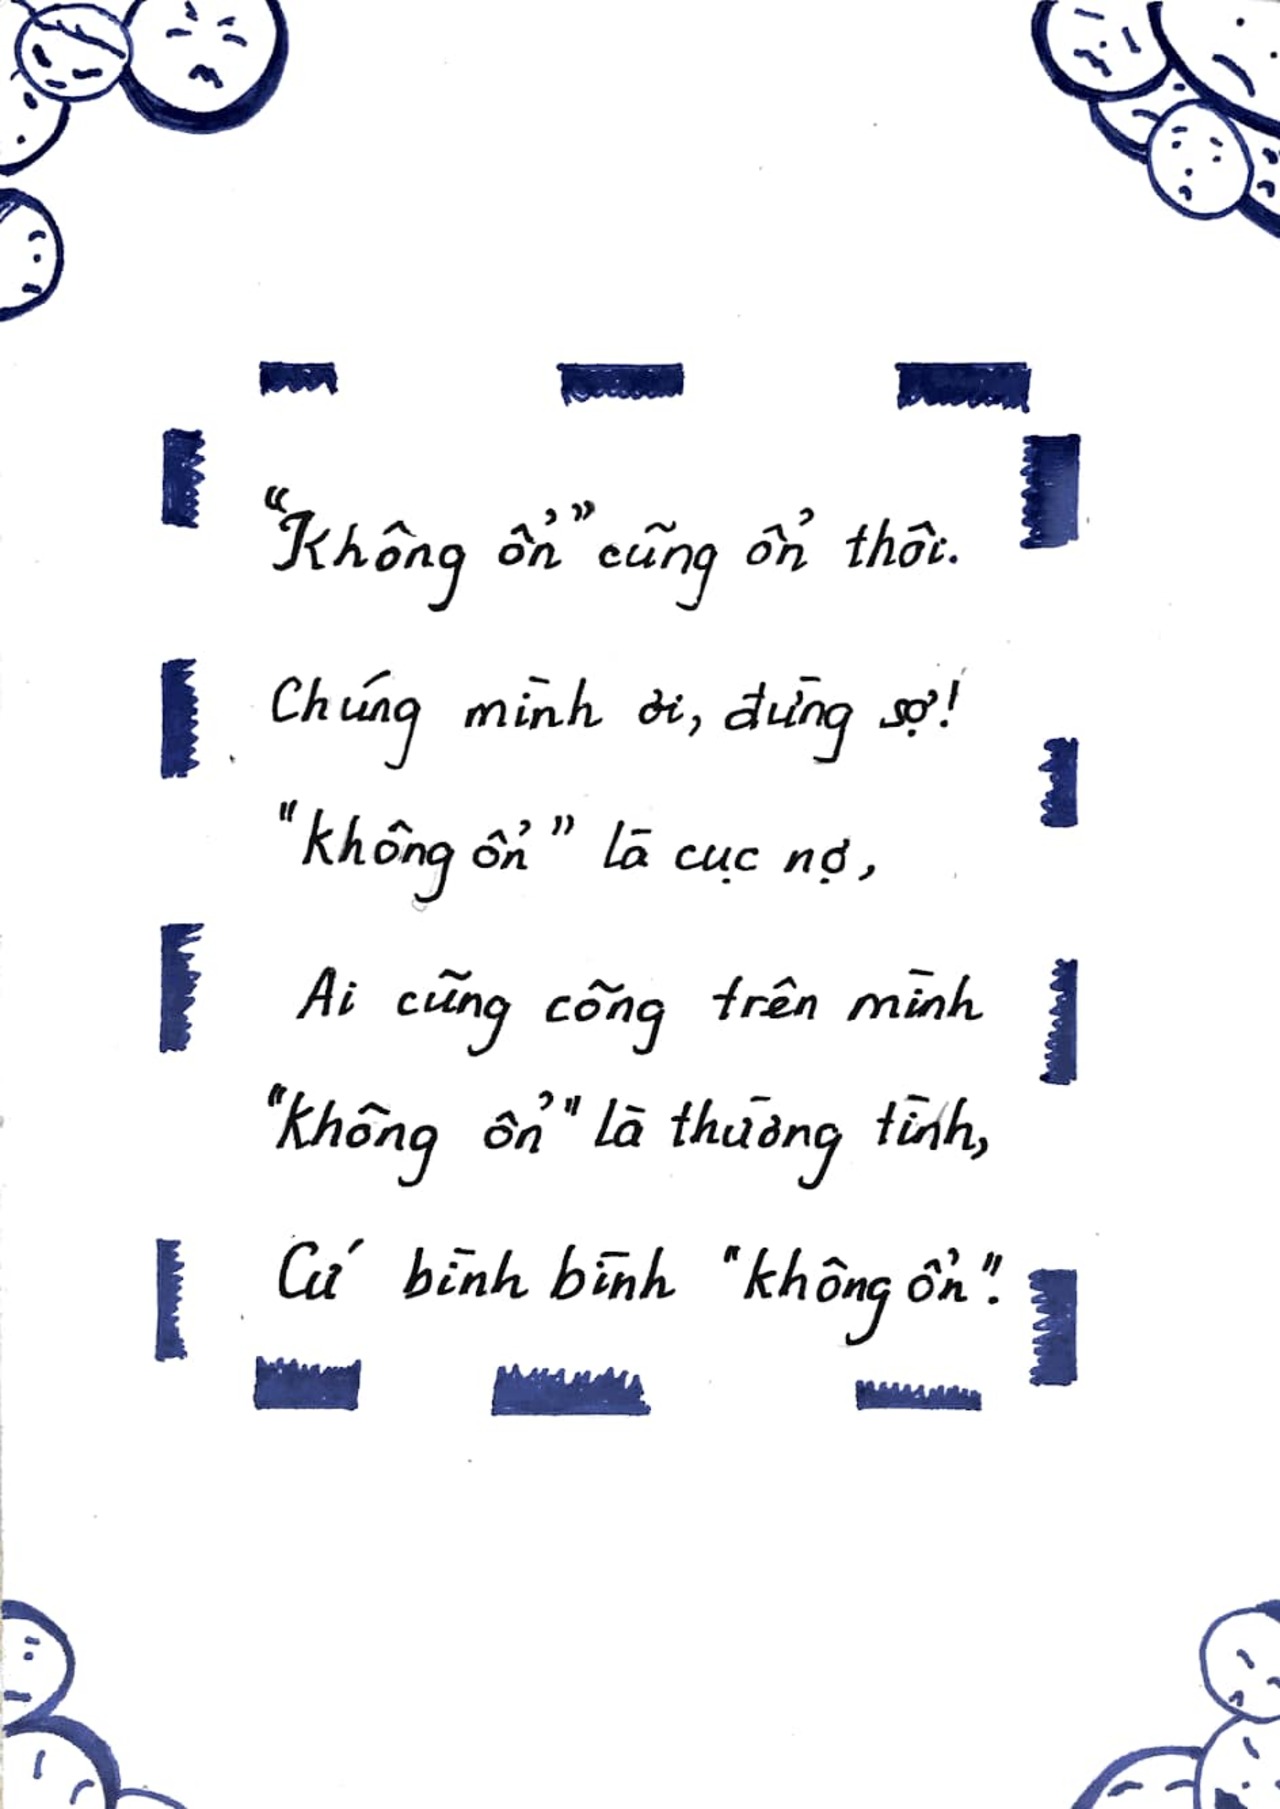 “Không ổn” cũng ổn thôi.
Chúng mình ơi, đừng sợ!
"không ổn” là cục nợ,
Ai cũng cõng trên mình
"không ổn" là thường tình,
Cứ bình bình "không ổn".